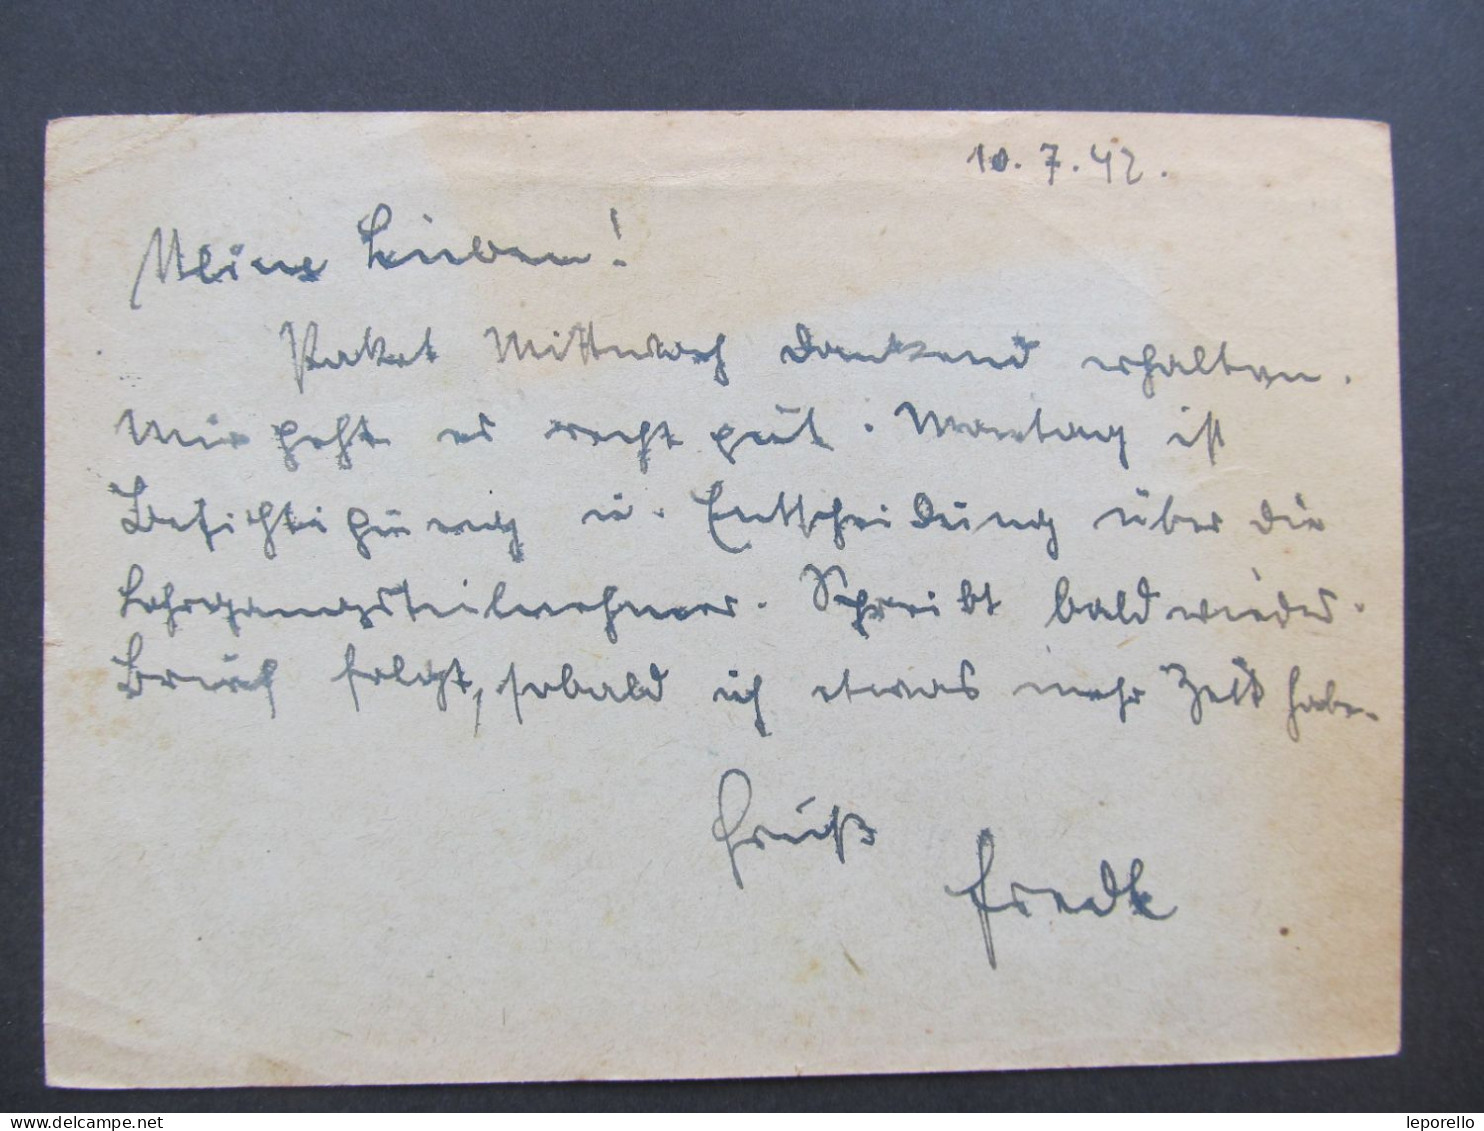 10.7.42.
Meine Lieben!
Paket Mittwoch dankend erhalten.
Mir geht es recht gut. Montag ist
Besichtigung u. Entscheidung über die
Lehrgangsteilnehmer. Schreibt bald wieder.
Brief folgt, sobald ich etwas mehr Zeit habe.
Gruß
leporello